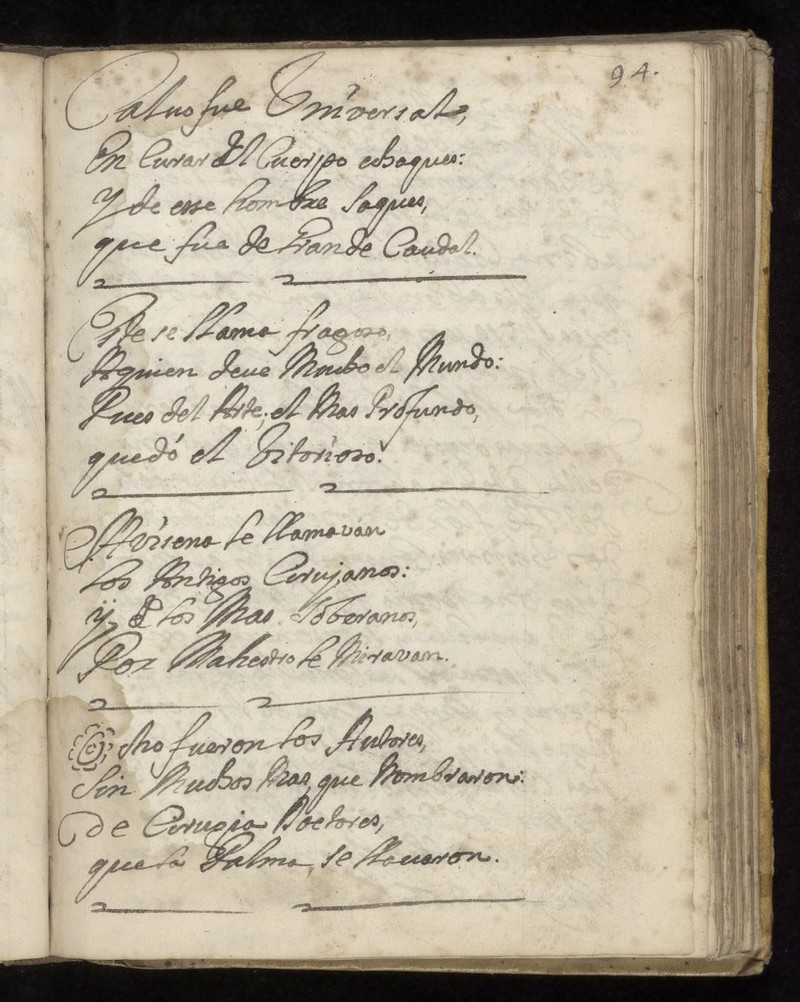 94.
Calvo fue Vniversal,
En Curar del Cuerpo achaques:
Y de esse hombre Saques,
que fue de Grande Caudal.
Este se llama fragoso,
Aquien deve Mucho el Mundo:
Pues del Arte, el Mas Profundo,
quedó el Vitorioso.
Avisena le llamavan
los Antigos Cirujanos:
y de los Mas Soberanos,
Por Mahestro le Miravan.
Ocho fueron los Autores,
Sin Muchos Mas, que Nombraron:
de Cirugia Doctores,
que la Palma, se llevaron.